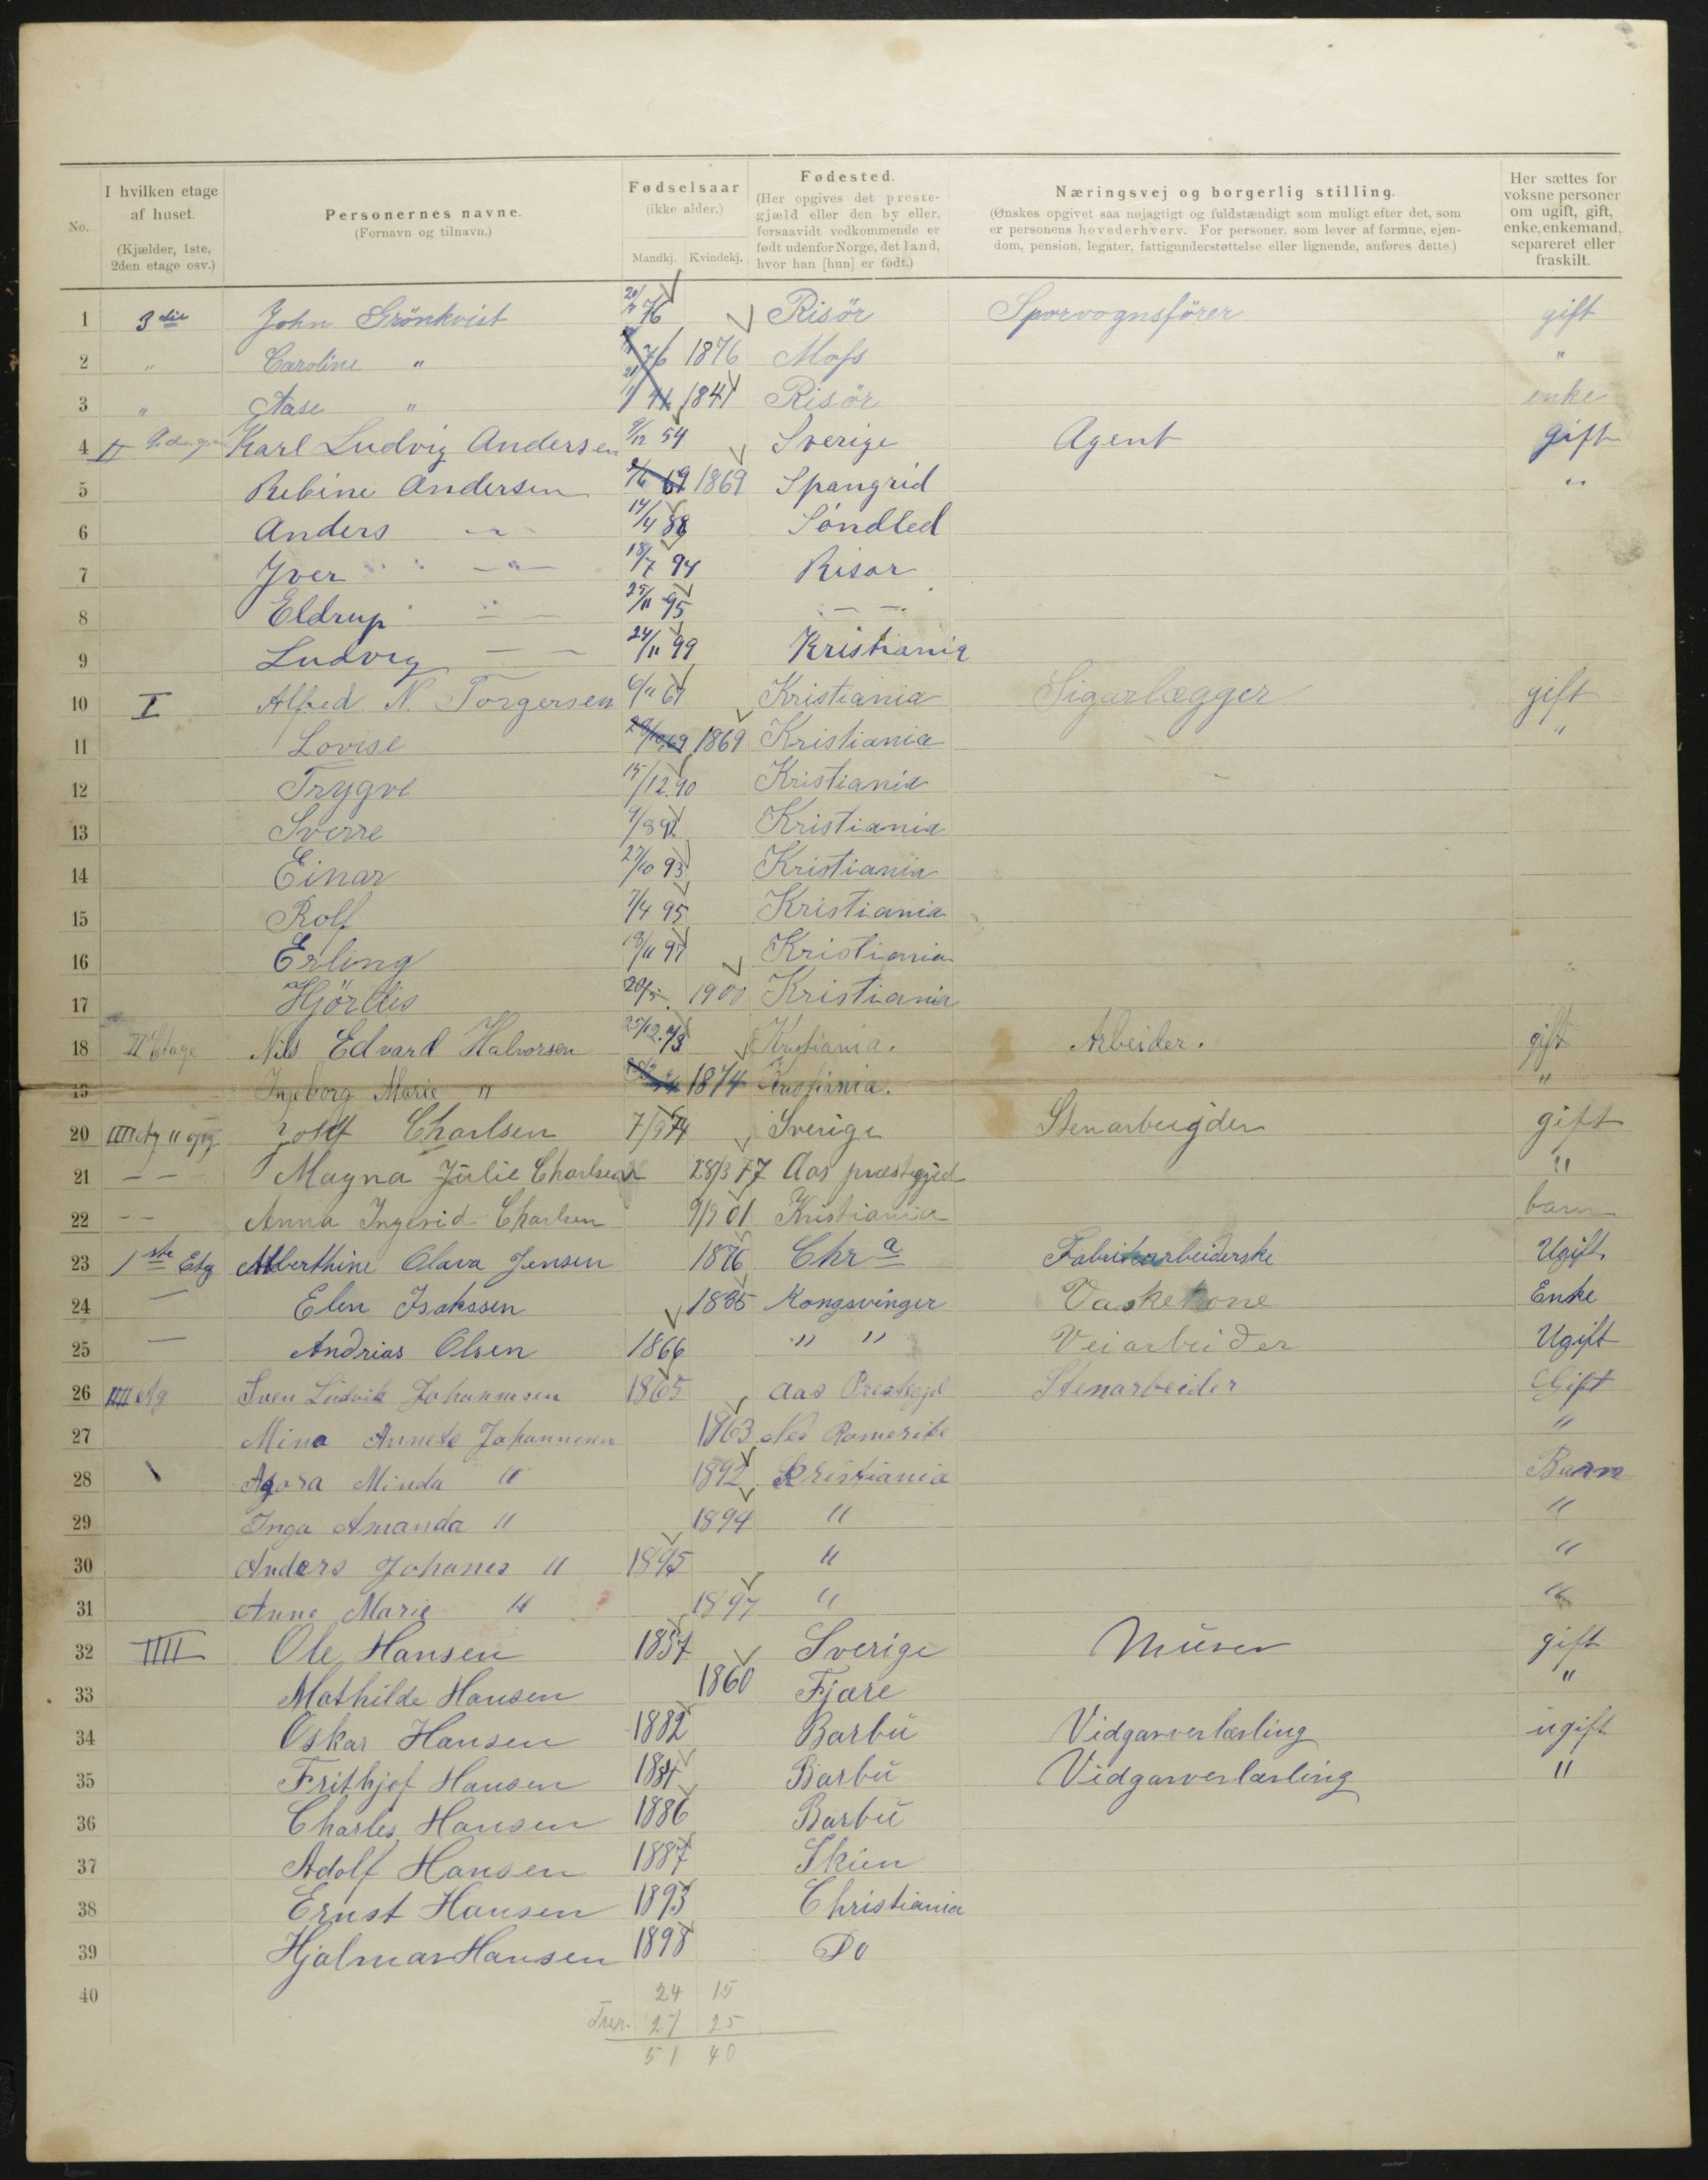 No.
I hvilken etage af huset.
(Kjælder, 1ste, 2den etage osv.)
Personernes navne.
(Fornavn og tilnavn.)
Fødselsaar
(ikke alder.)
Mandkj. Kvindekj.
Fødested.
(Her opgives det prestegjæld eller den by eller, forsaavidt vedkommende er født udenfor Norge, det land, hvor han [hun] er født.)
Næringsvej og borgerlig stilling.
(Ønskes opgivet saa nøjagtigt og fuldstændigt som muligt efter det, som er personens hovederhverv. For personer, som lever af formue, ejendom, pension, legater, fattigunderstøttelse eller lignende, anføres dette.)
Her sættes for voksne personer om ugift, gift, enke, enkemand, separeret eller fraskilt.
1 3die John Grönkvist 76 Risör Sporvognsförer gift
2 " Caroline " 76 1876 Mofs "
3 " Aase " 41 1841 Risör enke
4 II Karl Ludvig Andersen 9/12 54 Sverige Agent gift
5 Rebine Andersen 69 1869 Spangrid "
6 Anders — 14/4 88 Söndled
7 Iver — " — 18/7 94 Risør
8 Eldrup — — 25/11 95 — —
9 Ludvig — — 24/11 99 Kristiania
10 I Alfred N. Torgersen 6/11 67 Kristiania Sigarlægger gift
11 Lovise 69 1869 Kristiania "
12 Trygve 15/12.90 Kristiania
13 Sverre Kristiania
14 Einar 27/10 93 Kristiania
15 Rolf 7/4 95 Kristiania
16 Erling 18/11 97 Kristiania
17 Hjördis 20/5. 1900 Kristiania
18 II Etage Nils Edvard Halvorsen 25/12.73 Kristiania. Arbeider. gift
19 Ingeborg Marie " 1874 Kristiania. "
20 Charlsen 7/9 74 Sverige Stenarbeigder gift
21 — — Magna Julie Charlsen 28/3 77 Aas præstegjed "
22 — — Anna Ingerid Charlsen 9/9 01 Kristiania barn
23 1ste Etg Albertine Olava Jensen 1876 Chr a Fabrikarbeiderske Ugift
24 — Elen Isakssen 1835 Kongsvinger Vaskekone Enke
25 — Andrias Olsen 1866 " " Veiarbeider Ugift
26 IIII etg Sven Ludvik Johannesen 1865 Aas Prestegjl Stenarbeider Gift
27 Mina Annete Johannesen 1863 Nes Romerike "
28 Agora Minda " 1892 Kristiania Barn
29 Inga Amanda " 1894 " "
30 Anders Johanes " 1895 " "
31 Anne Marie " 1897 " "
32 IIII Ole Hansen 1857 Sverige Murer gift
33 Mathilde Hansen 1860 Fjære "
34 Oskar Hansen 1882 Barbu Vidgarverlærling ugift
35 Frithjof Hansen 1884 Barbu Vidgarverlærling "
36 Charles Hansen 1886 Barbu
37 Adolf Hansen 1887 Skien
38 Ernst Hansen 1893 Christiania
39 Hjalmar Hansen 1898 Do
40
24 15
27 25
51 40